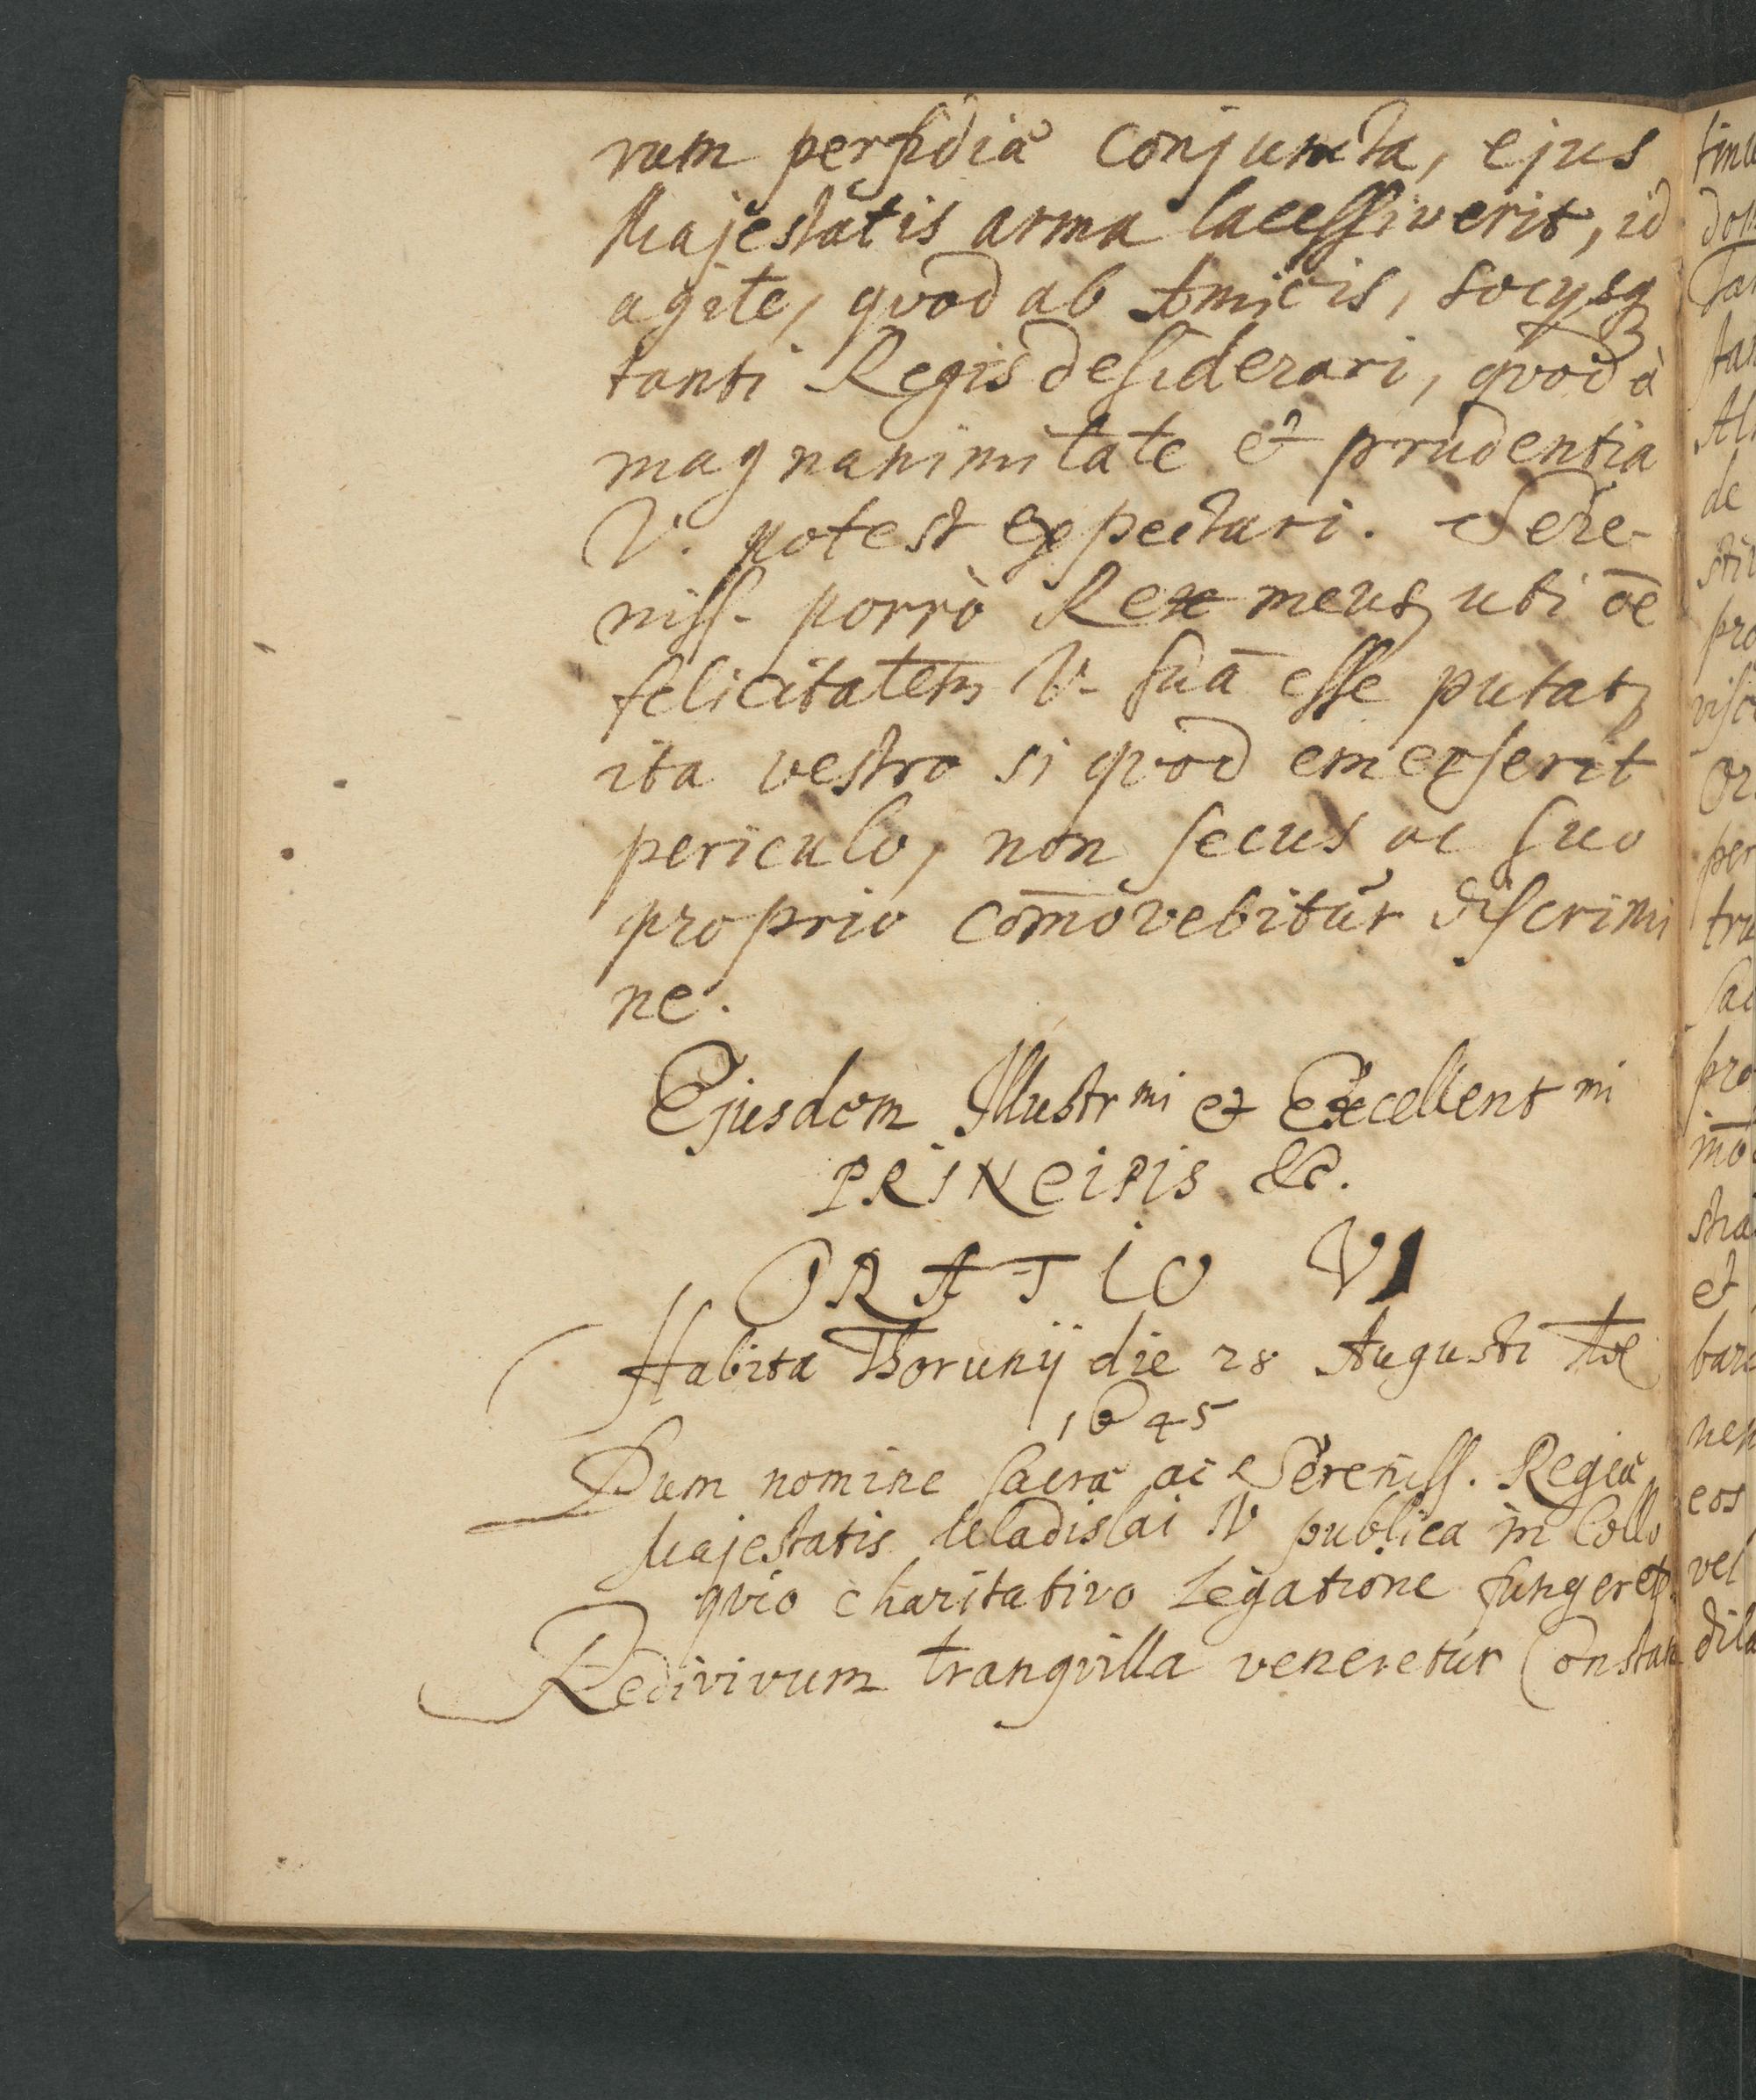 rum perfidiâ conjuncta, ejus
Majestatis arma lacessiverit, id
agite, qvod ab Amicis, socijsq
tanti Regis desiderari, qvod à
magnanimitate & prudentia
V. potest expectari. Sere-
niss. porrò Rex meus, uti oē
felicitatem V. suā esse putat,
ita vestro si qvod emerserit
periculo, non secus ac suo
proprio com̄ovebitur discrimi
ne.
Ejusdem Illustrmi et Excellentmi
PRINCIPIS &c.
ORATIO VI
Habita Thorunij die 28 Augusti Aō
1645
Dum nomine Sacræ ac Sereniss. Regiæ
Majestatis Uladislai IV publica in Collo
qvio charitativo Legatione fungeret.
Redivivum tranqvilla veneretur Constan